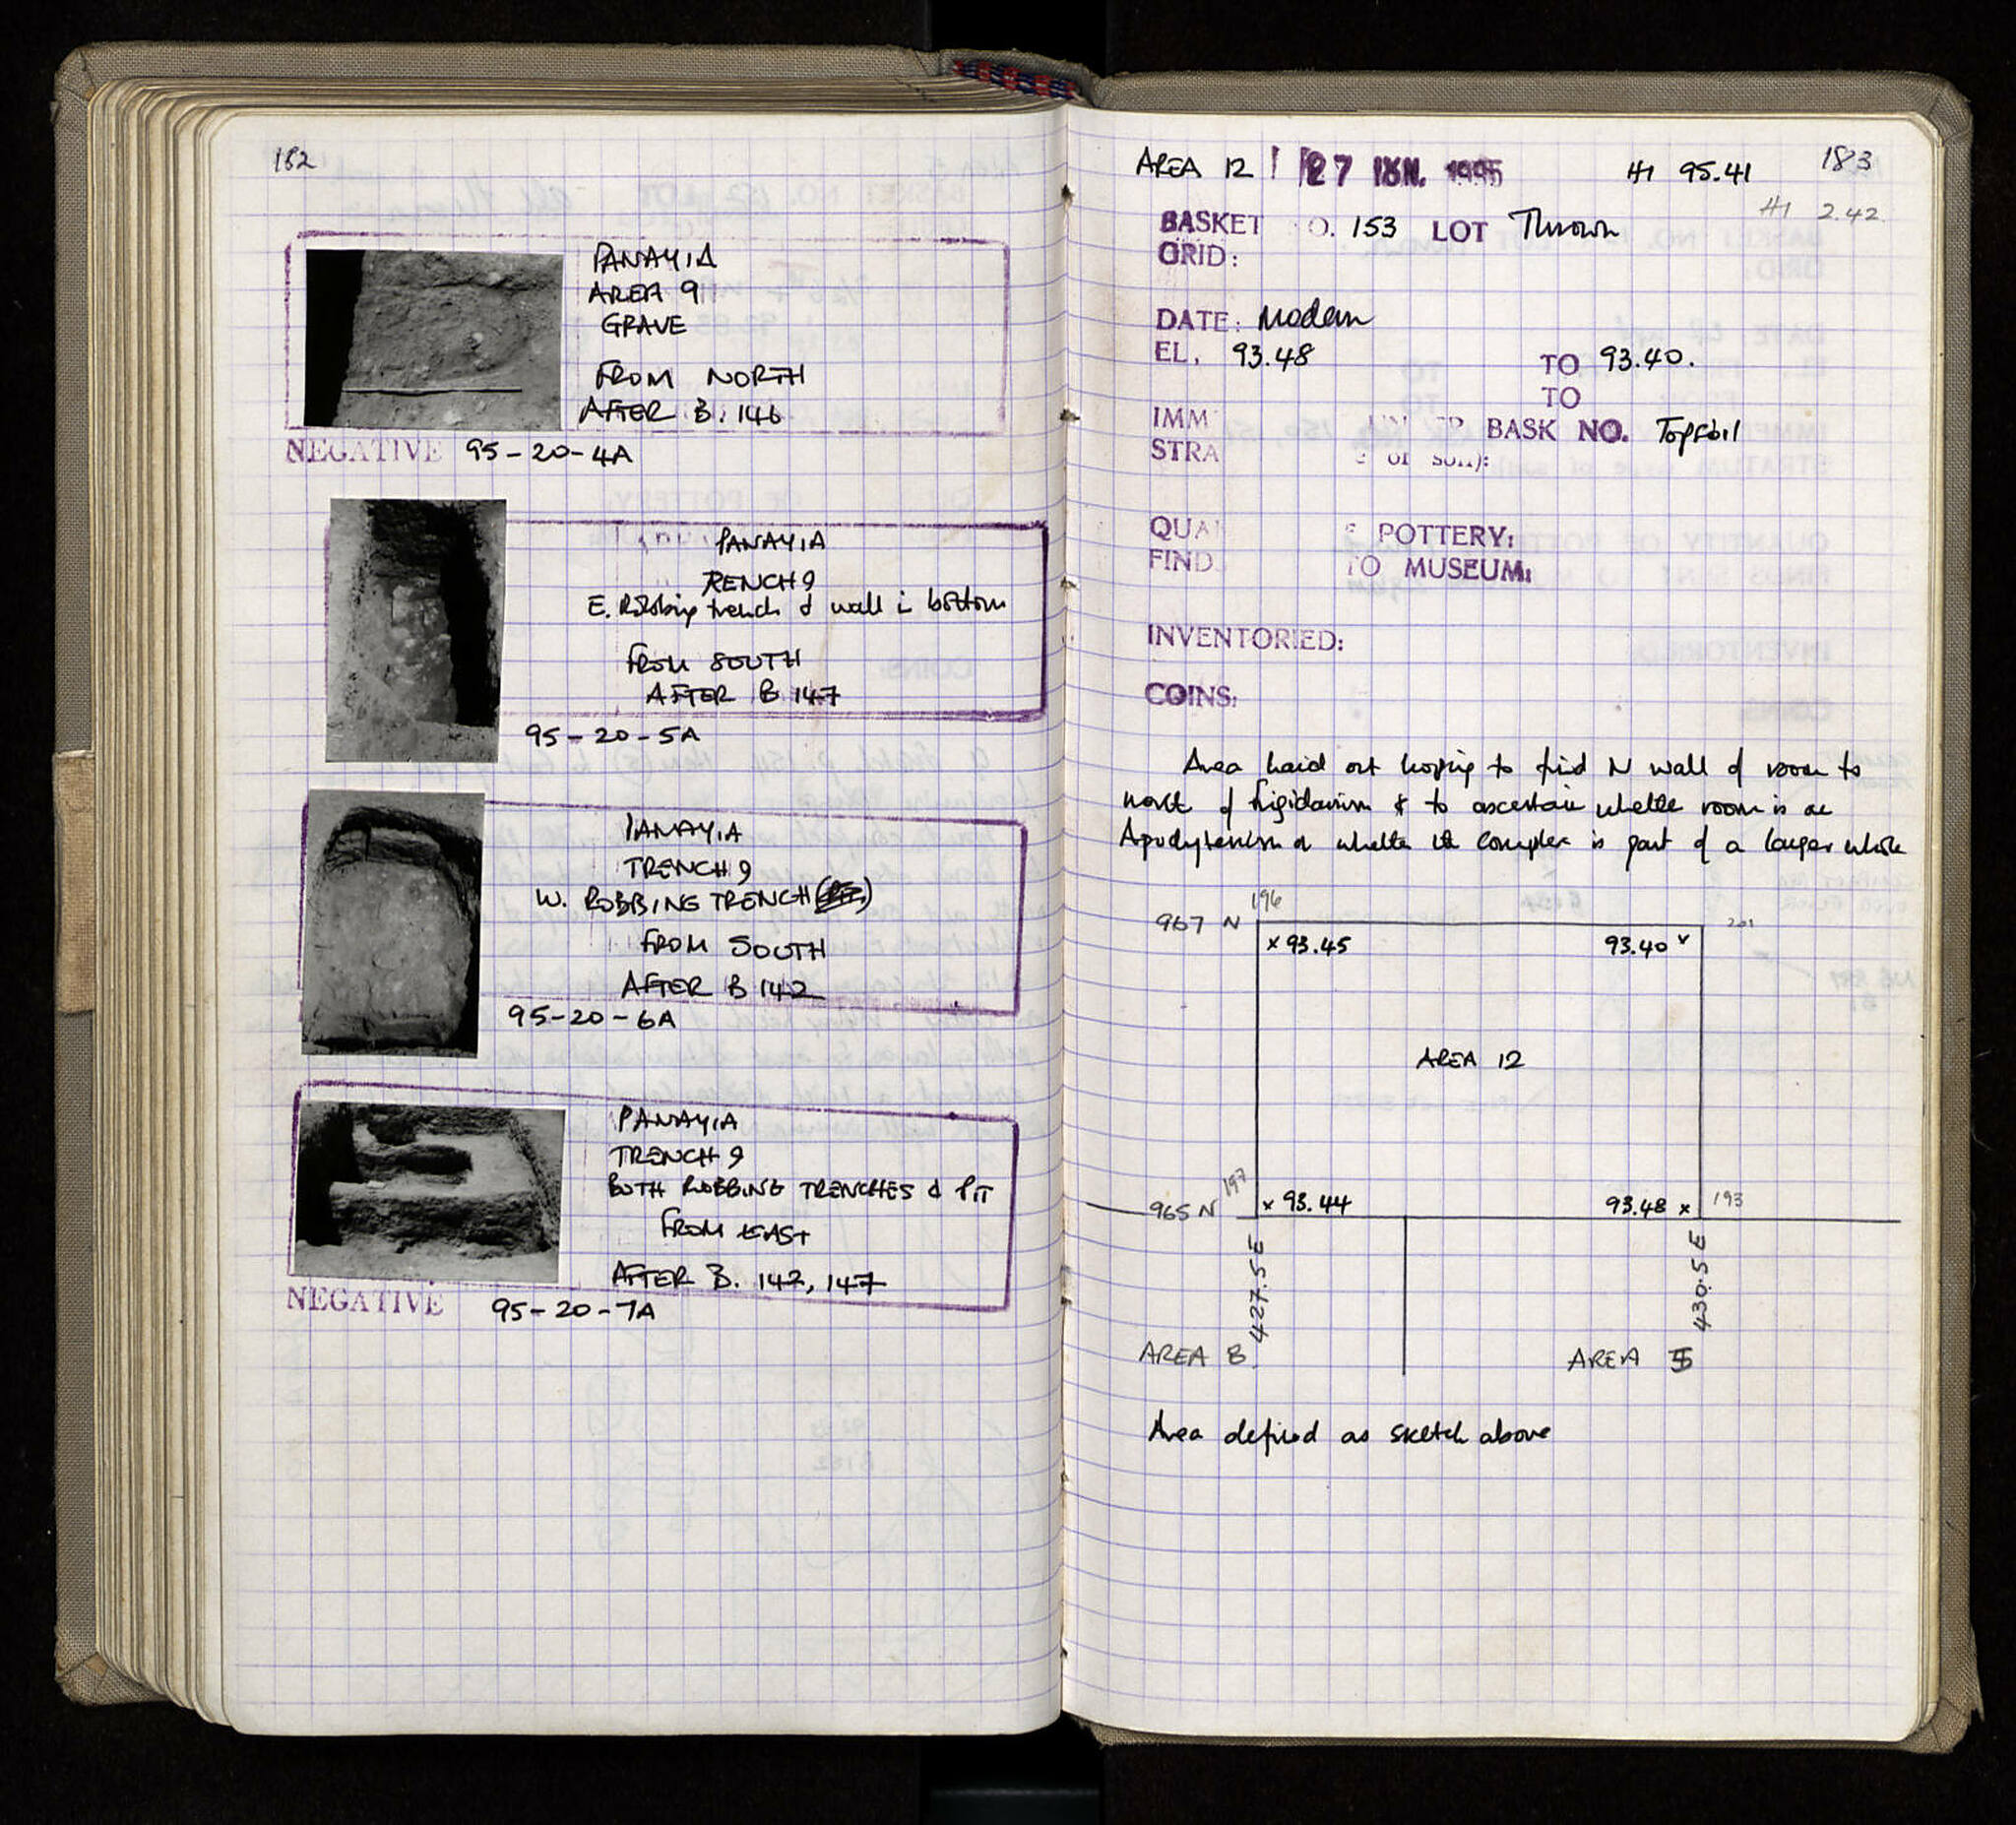 182
PANAYIA
AREA 9
GRAVE
FROM NORTH
AFTER B. 146
NEGATIVE 95-20-4A
PANAYIA
RENCH 9
E. Robbing trench & wall in bottom
FROM SOUTH
AFTER B 147
95-20-5A
PANAYIA
TRENCH 9
W. ROBBING TRENCH
FROM SOUTH
AFTER B 142
95-20-6A
PANAYIA
TRENCH 9
BOTH ROBBING TRENCHES & PIT
FROM EAST
AFTER B. 142, 147
NEGATIVE 95-20-7A
183
AREA 12 27 JUN. 1995 HI 95.41
HI 2.42
BASKET O. 153 LOT Thrown
GRID:
DATE: Modern
EL. 93.48 TO 93.40.
TO
IMM BASK NO. Topsoil
STRA of soil):
QUAN POTTERY:
FINDS TO MUSEUM:
INVENTORIED:
COINS:
Area laid out hoping to find N wall of room to
north of frigidarium & to ascertain whether room is an
Apodyterium or whether the complex is part of a larger whole
967 N 196 201
x 93.45 93.40 x
AREA 12
965 N 197 x 93.44 93.48 x 193
427.5 E 430.5 E
AREA 8 AREA 5
Area defined as sketch above